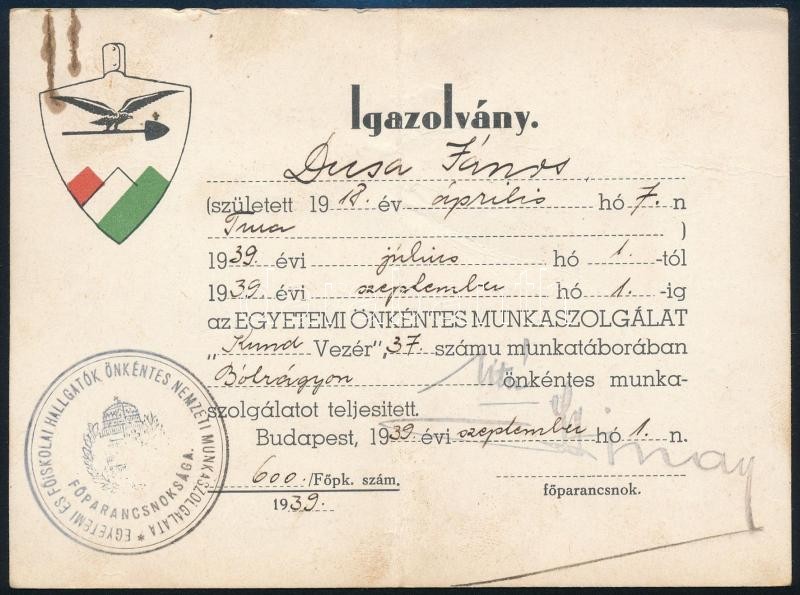 Igazolvány.
Dusa János
(született 1918. év április hó 7.-n
)
1939. évi július hó 1.-től
1939. évi szeptember hó 1.-ig
az EGYETEMI ÖNKÉNTES MUNKASZOLGÁLAT
„Kund Vezér" 37. számu munkatáborában
önkéntes munka-
szolgálatot teljesitett.
Budapest, 1939. évi szeptember hó 1. n.
600./Főpk. szám.
1939.
főparancsnok.
EGYETEMI ÉS FŐISKOLAI HALLGATÓK ÖNKÉNTES NEMZETI MUNKASZOLGÁLATA *
FŐPARANCSNOKSÁGA.